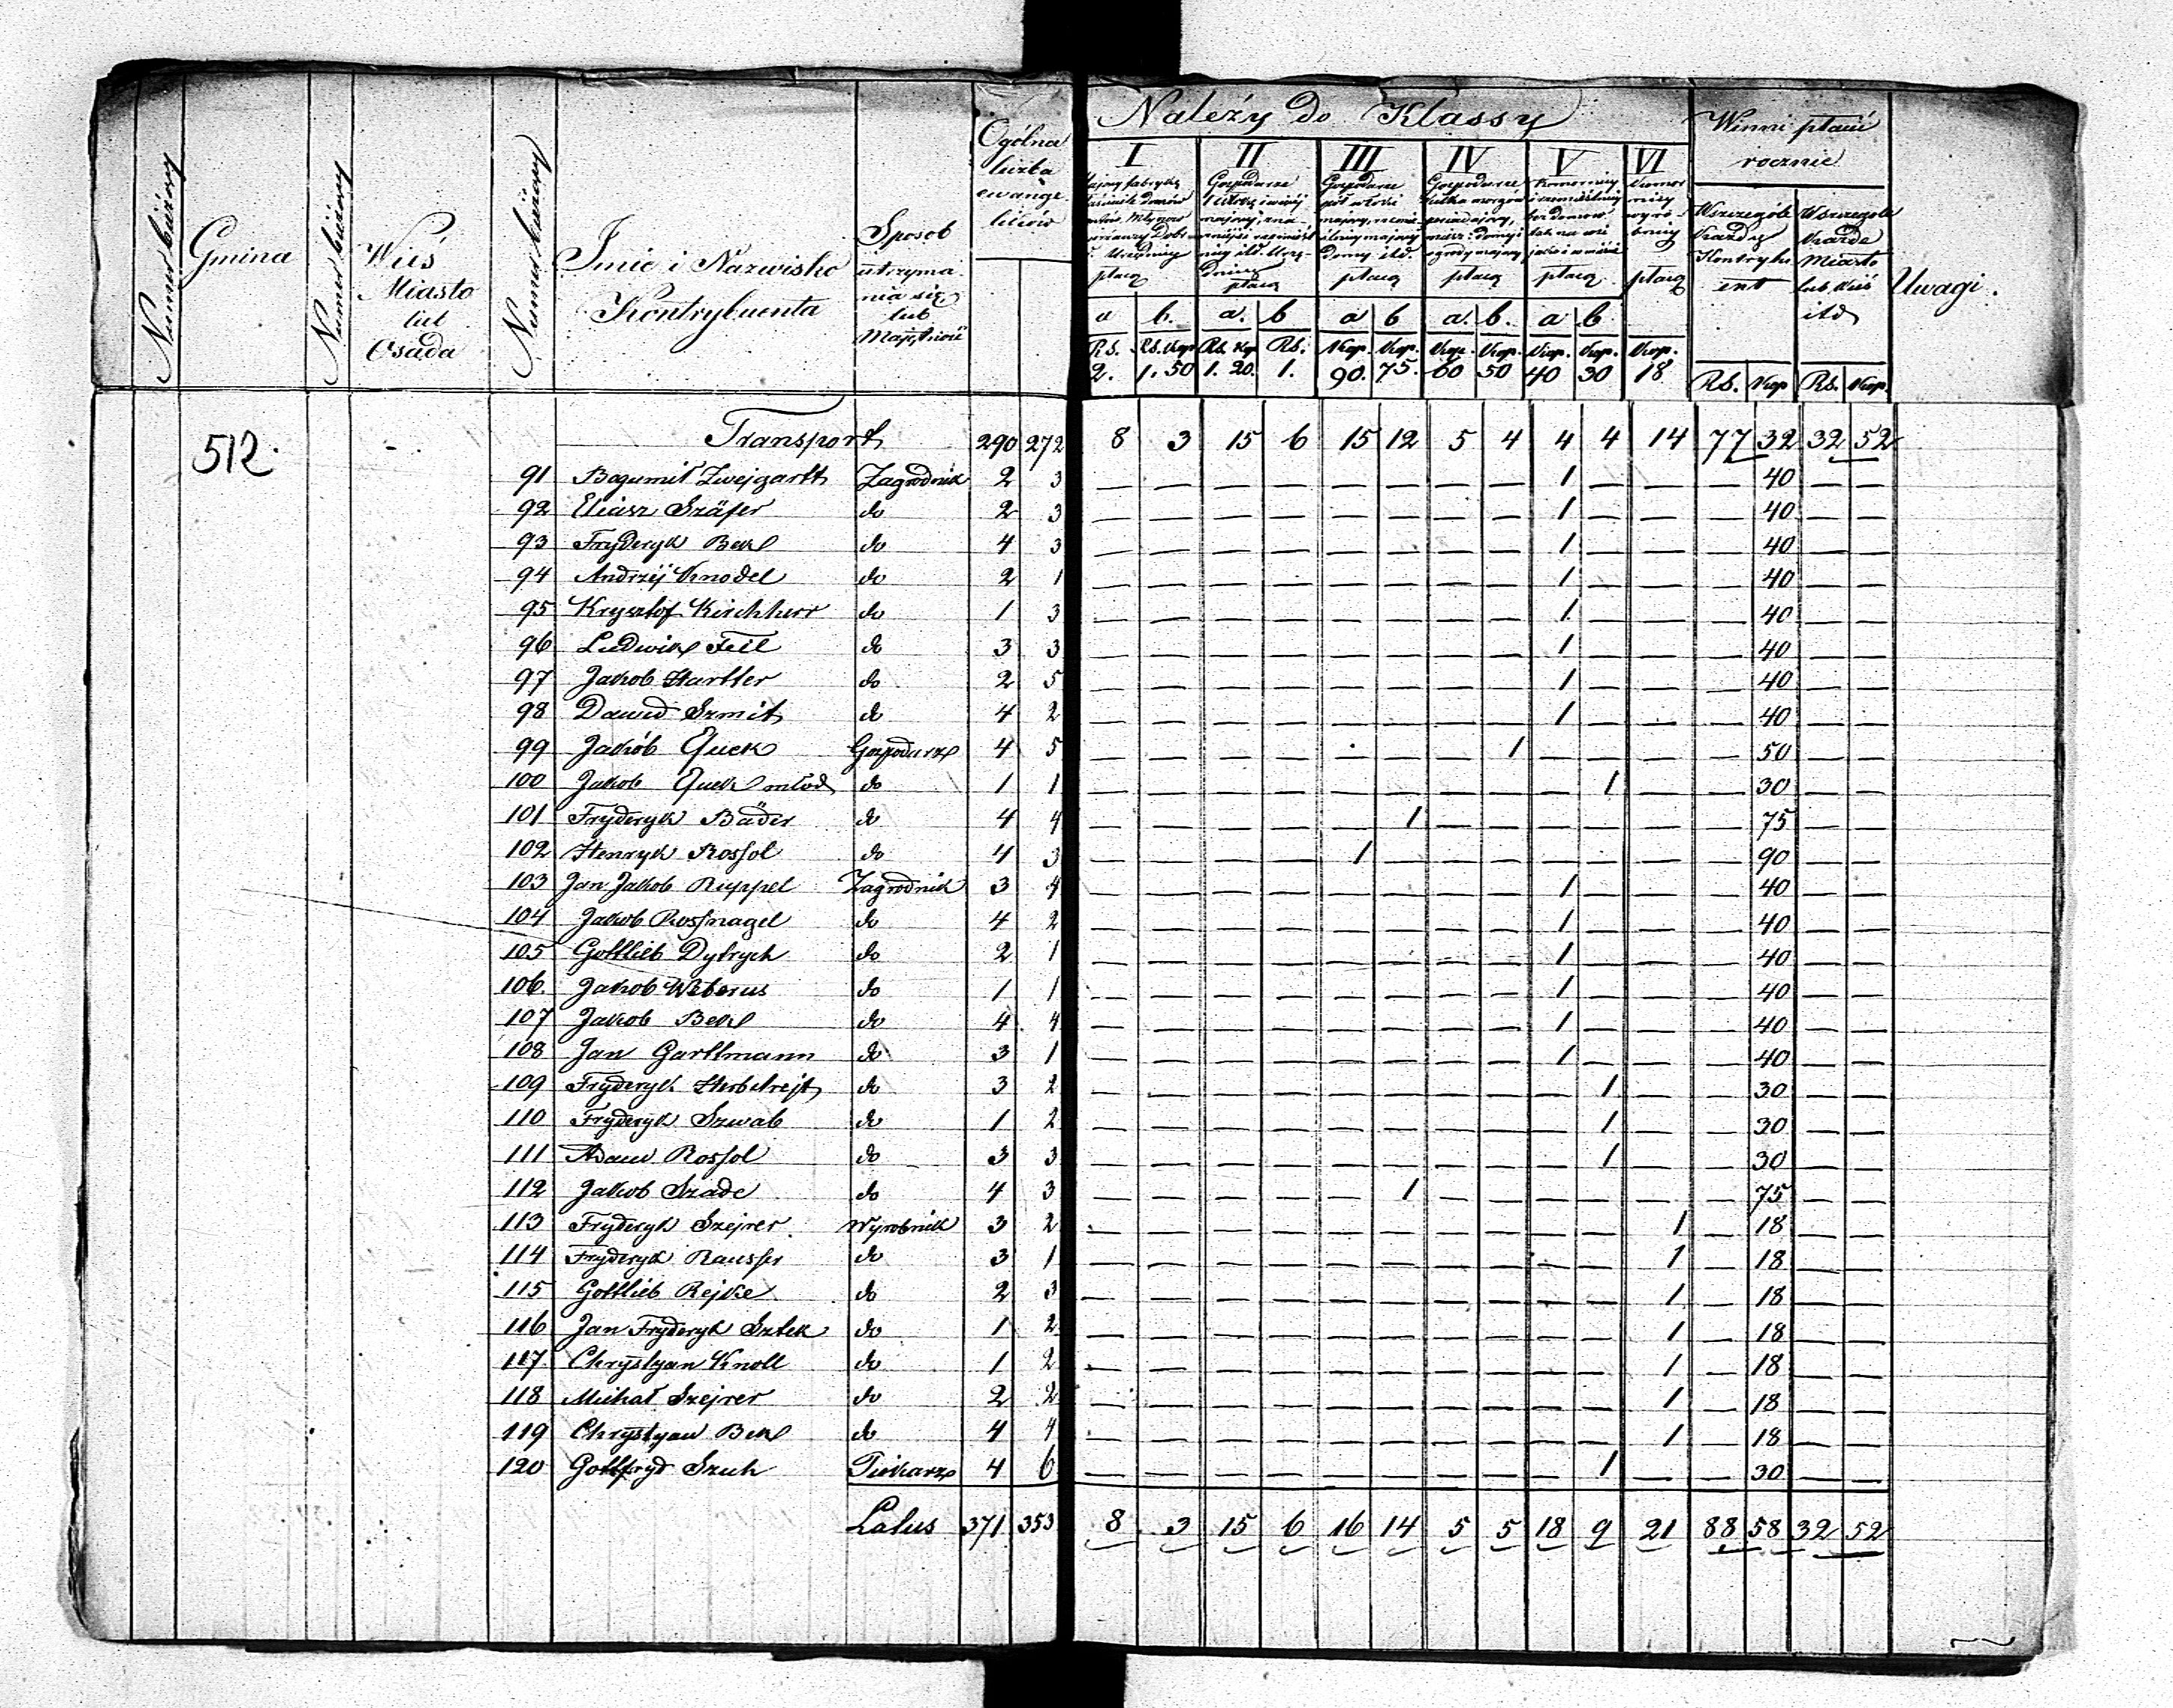 Numer bieżący
Gmina
Numer bieżący
Wieś
Miasto
lub
Osada
Numer bieżący
Imie i Nazwisko
Kontrybuenta
Sposob
utrzyma
nia się
lub
Majętność
Ogólna
liczba
ewange
lików
Należy do Klassy
I II III IV V VI
płacą płacą płacą płacą płacą płacą
a b. a. b a b a. b. a b
Rs. Rs. Kop Rs. Kop Rs. Kop. Kop. Kop. Kop. Kop. Kop. Kop.
2. 1.50 1.20. 1. 90. 75. 60 50 40 30 18
Winni płacić
rocznie
Wszczególe
Każdy
Kontrybu
ent
Wszczegole
Każde
Miasto
lub Wieś
itd
Rs. Kop Rs. Kop.
Uwagi.
512. Transport 290 272 8 3 15 6 15 12 5 4 4 4 14 77 32 32 52
91 Bogumił Zwejgartt Zagrodnik 2 3 — — — — — — — — 1 — — — 40 — —
92 Eliasz Szäfer do 2 3 — — — — — — — — 1 — — — 40 — —
93 Fryderyk Bek do 4 3 — — — — — — — — 1 — — — 40 — —
94 Andrzij Knodel do 2 1 — — — — — — — — 1 — — — 40 — —
95 Krysztof Kirchherr do 1 3 — — — — — — — — 1 — — — 40 — —
96 Ludwik Feil do 3 3 — — — — — — — — 1 — — — 40 — —
97 Jakob Hartter do 2 5 — — — — — — — — 1 — — — 40 — —
98 Dawid Szmit do 4 2 — — — — — — — — 1 — — — 40 — —
99 Jakób Quek Gospodarz 4 5 — — — — — — — 1 — — — — 50 — —
100 Jakob Quek młod do 1 1 — — — — — — — — — 1 — — 30 — —
101 Fryderyk Bäder do 4 4 — — — — — 1 — — — — — — 75 — —
102 Henryk Rossol do 4 3 — — — — 1 — — — — — — — 90 — —
103 Jan Jakob Ruppel Zagrodnik 3 4 — — — — — — — — 1 — — — 40 — —
104 Jakob Rosnagel do 4 2 — — — — — — — — 1 — — — 40 — —
105 Gottlieb Dytrych do 2 1 — — — — — — — — 1 — — — 40 — —
106. Jakob Weberus do 1 1 — — — — — — — — 1 — — — 40 — —
107 Jakob Bek do 4 4 — — — — — — — — 1 — — — 40 — —
108 Jan Garttmann do 3 1 — — — — — — — — 1 — — — 40 — —
109 Fryderyk Herbstrejt do 3 2 — — — — — — — — — 1 — — 30 — —
110 Fryderyk Szwab do 1 2 — — — — — — — — — 1 — — 30 — —
111 Adam Rossol do 3 3 — — — — — — — — — 1 — — 30 — —
112 Jakob Szade do 4 3 — — — — — 1 — — — — — — 75 — —
113 Fryderyk Szejrer Wyrobnik 3 2 — — — — — — — — — — 1 — 18 — —
114 Fryderyk Rausser do 3 1 — — — — — — — — — — 1 — 18 — —
115 Gottlieb Rejke do 2 3 — — — — — — — — — — 1 — 18 — —
116 Jan Fryderyk Sztek do 1 2 — — — — — — — — — — 1 — 18 — —
117. Chrystyan Knoll do 1 2 — — — — — — — — — — 1 — 18 — —
118 Michał Szejrer do 2 2 — — — — — — — — — — 1 — 18 — —
119 Chrystyan Bek do 4 4 — — — — — — — — — — 1 — 18 — —
120 Gottfryd Szuh Piekarz 4 6 — — — — — — — — — 1 — — 30 — —
Latus 371 353 8 3 15 6 16 14 5 5 18 9 21 88 58 32 52